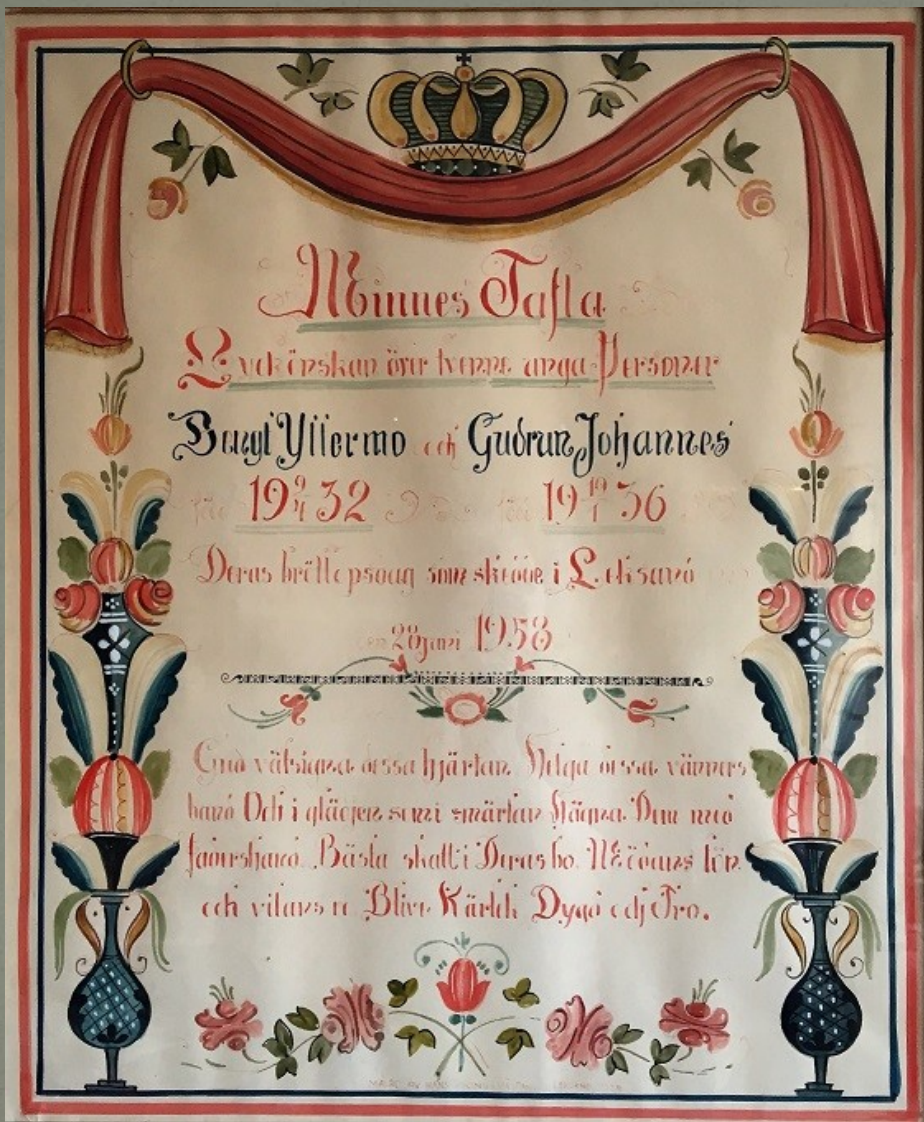 Minnes Tafla
Lyckönskan över tvenne unga Personer
Bengt Yttermo och Gudrun Johannes
född 19 9/4 32 född 19 19/1 36
Deras bröllopsdag som skedde i Leksand
den 28 juni 1958
Gud välsigna dessa hjärtan Helga dessa vänners
band Och i glädjen som i smärtan Hägna Dem med
fadershand Bästa skatt i Deras bo
och vilans ro Blive Kärlek Dygd och Tro.